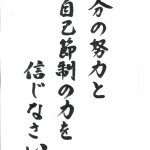 分の努力と
自己節制の力を
信じなさい